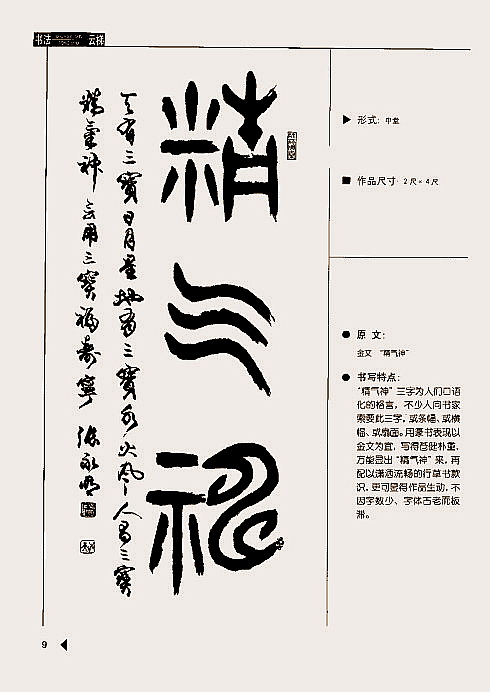 书法 云梯
精气神
天有三寳日月星地有三寳水火风人有三寳
精气神云用三寳福寿宁 张永明
▶ 形式: 中堂
■ 作品尺寸: 2尺×4尺
● 原文:
金文 "精气神"
● 书写特点:
"精气神"三字为人们口语
化的格言,不少人向书家
索要此三字,或条幅、或横
幅、或扇面。用篆书表现以
金文为宜,写得苍雄朴重,
方能显出"精气神"来,再
配以潇洒流畅的行草书款
识,更可显得作品生动,不
因字数少、字体古老而板
滞。
9